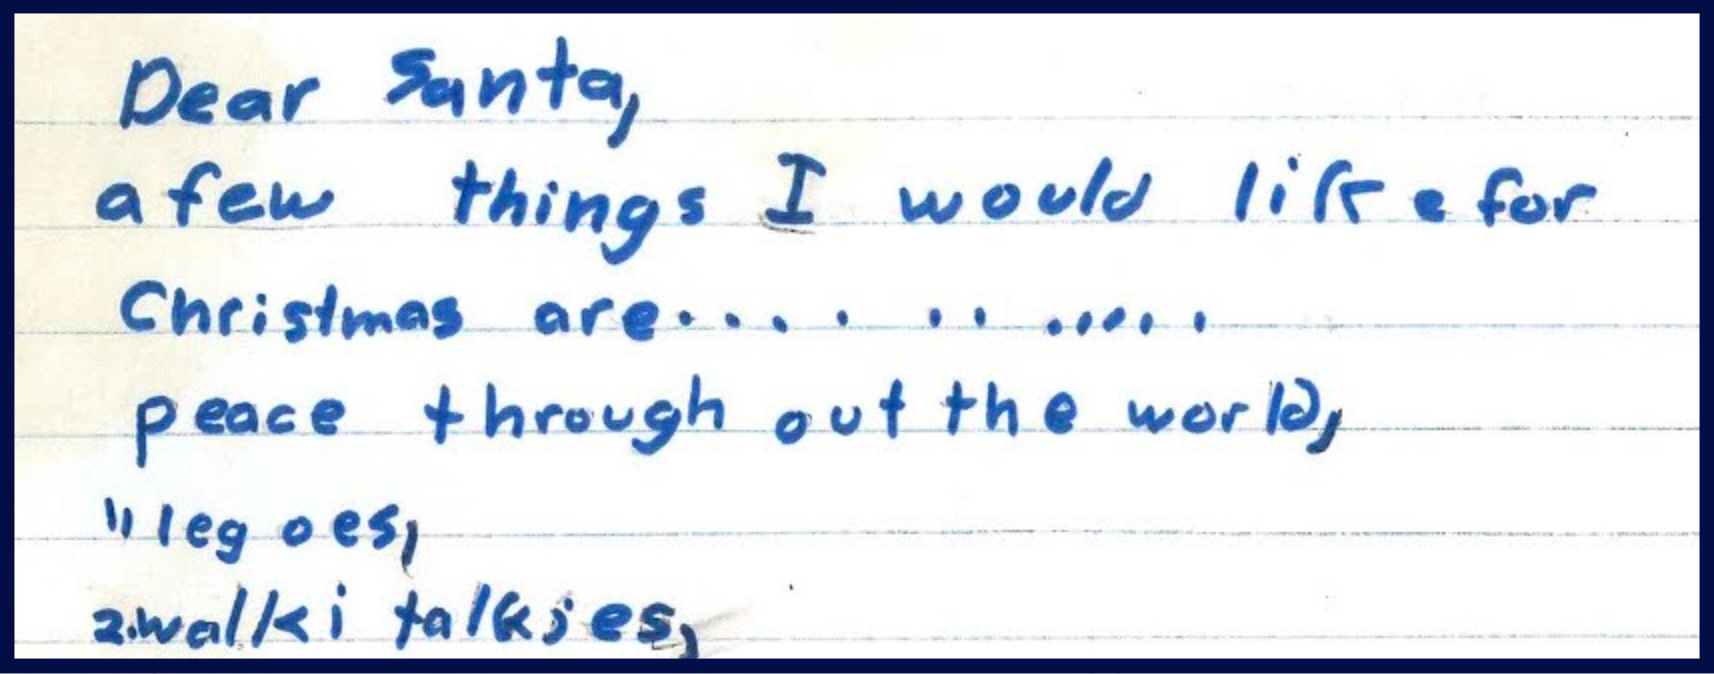 Dear Santa,
a few things I would like for
Christmas are...........
peace through out the world,
1, legoes,
2. walki talkies,